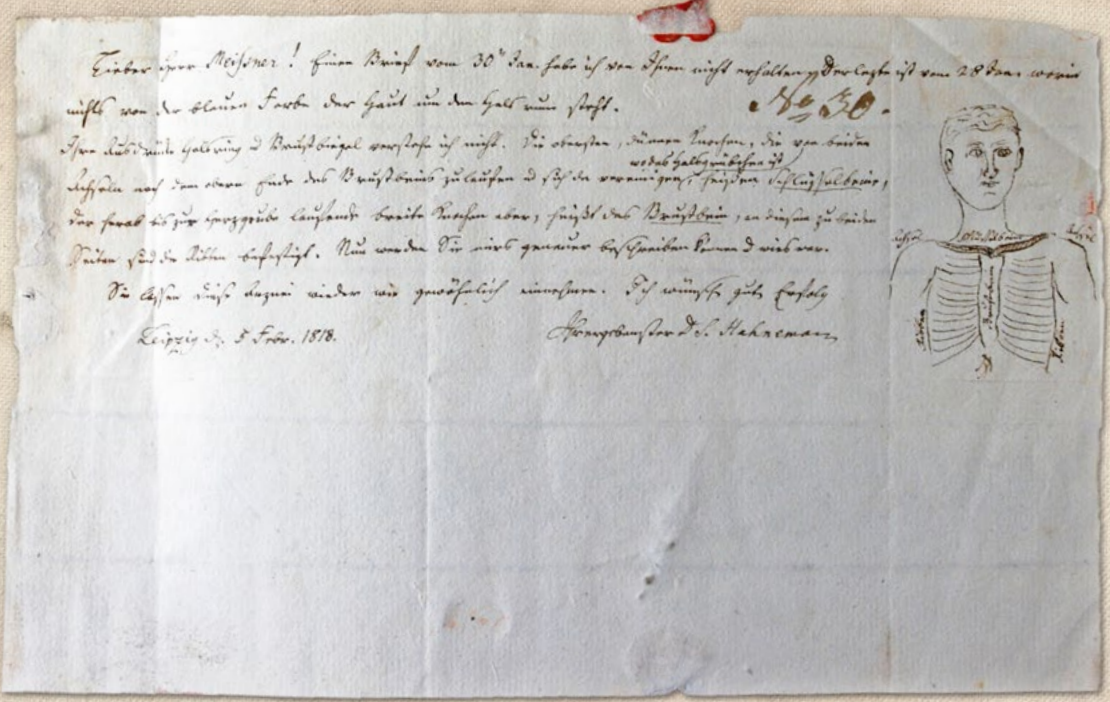 Lieber Herr Meißner! Einen Brief vom 30t Jan. habe ich von Ihnen nicht erhalten, Der letzte ist vom 28 Jan. worin
nichts von der blauen Farbe der Haut um den Hals rum steht.
No 30.
Ihre Ausdrücke Halsring u Brustbiegel verstehe ich nicht. Die obersten, dünnen Knochen, die von beiden
wo das Halsgrübchen ist
Achseln nach dem obern Ende des Brustbeins zulaufen u sich da vereinigen, heißen Schlüsselbeine,
der herab bis zur Herzgrube laufende breite Knochen aber, heißt das Brustbein, an diesem zu beiden
Seiten sind die Ribben befestigt. Nun werden Sie mirs genauer beschreiben können
Sie lassen diese Arznei wieder wie gewöhnlich einnehmen. Ich wünsche guten Erfolg
Leipzig d. 5 Febr. 1818.
D S. Hahnemann
Achsel
Schlüsselbeine
Achsel
Brustbein
Ribben
Ribben